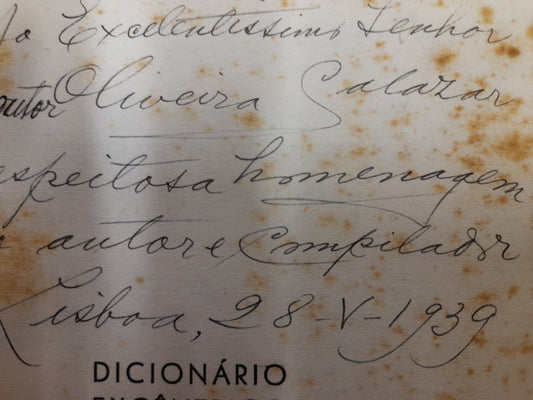 Ao Excelentissimo Senhor
outor Oliveira Salazar
espeitosa homenagem
autor e compilador
Lisboa, 28-V-1939
DICIONÁRIO